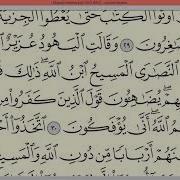 أُوتُوا۟ ٱلْكِتَٰبَ حَتَّىٰ يُعْطُوا۟ ٱلْجِزْيَةَ
صَٰغِرُونَ ٢٩ وَقَالَتِ ٱلْيَهُودُ عُزَيْرٌ
ٱلنَّصَٰرَى ٱلْمَسِيحُ ٱبْنُ ٱللَّهِ ذَٰلِكَ
هِهِمْ يُضَٰهِـُٔونَ قَوْلَ ٱلَّذِينَ كَفَرُوا۟ مِن
ٱللَّهُ أَنَّىٰ يُؤْفَكُونَ ٣٠ ٱتَّخَذُوٓا۟
نَهُمْ أَرْبَابًا مِّن دُونِ ٱللَّهِ وَٱلْمَسِيحَ